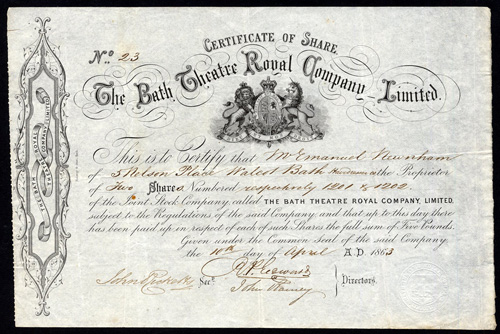 CERTIFICATE OF SHARE.
No. 23
The Bath Theatre Royal Company Limited.
This is to Certify that Mr Emanuel Newnham
of 5 Nelson Place Walcot Bath is the Proprietor
of Two Shares Numbered respectively 1201 & 1202
of the Joint Stock Company called THE BATH THEATRE ROYAL COMPANY, LIMITED,
subject to the Regulations of the said Company and that up to this day there
has been paid up in respect of each of such Shares the full sum of Five Pounds.
Given under the Common Seal of the said Company
the 10th day of April A.D. 1863
Secy.
John
Directors.
THE BATH THEATRE ROYAL COMPANY LIMITED